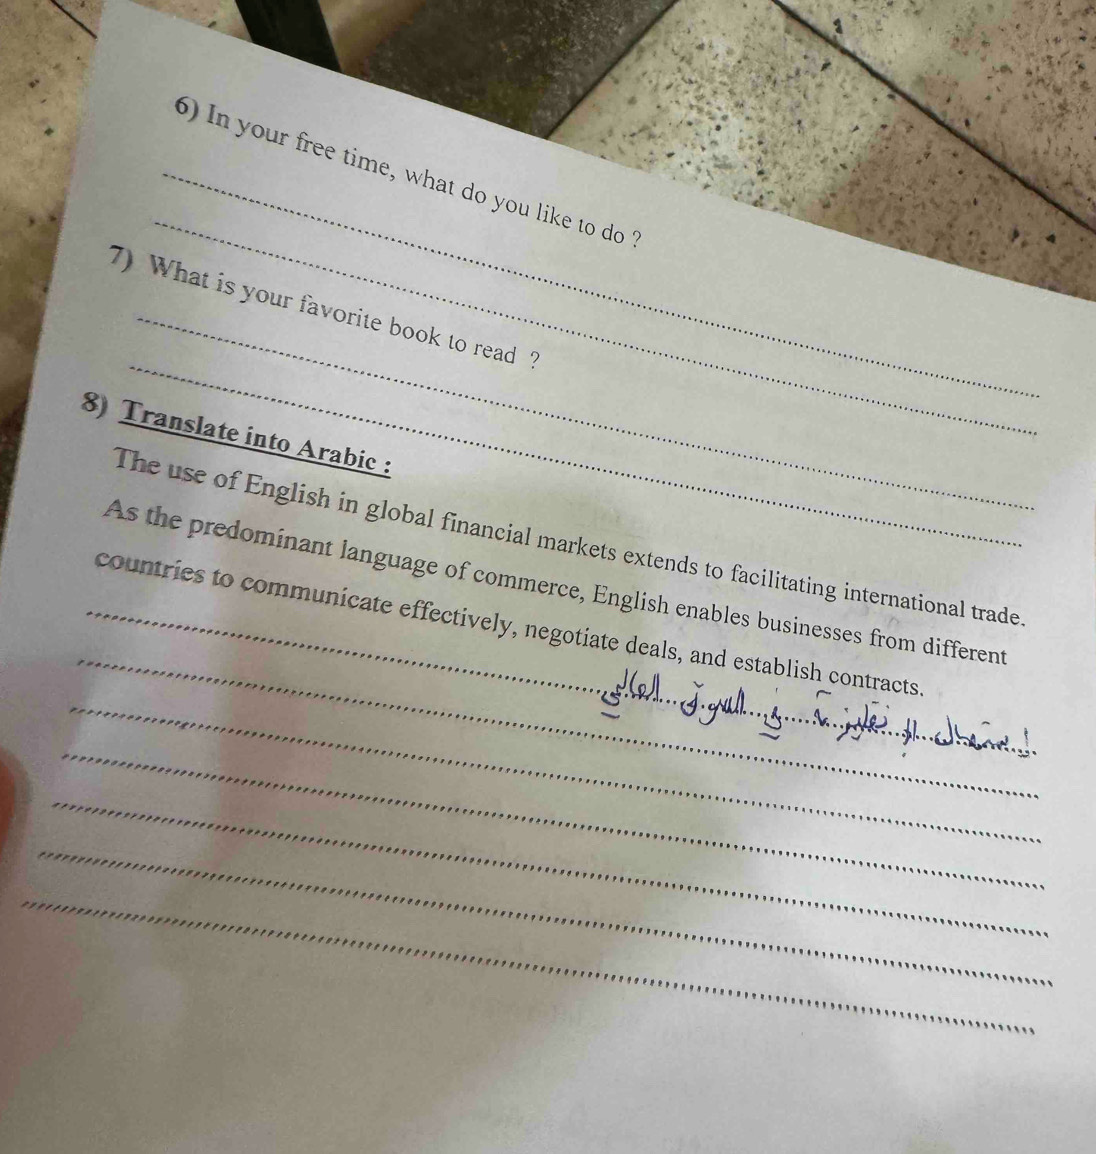 6) In your free time, what do you like to do ?
7) What is your favorite book to read ?
8) Translate into Arabic :
The use of English in global financial markets extends to facilitating international trade.
As the predominant language of commerce, English enables businesses from different
countries to communicate effectively, negotiate deals, and establish contracts.
إستعمال الإنجليزية في السوق المالي